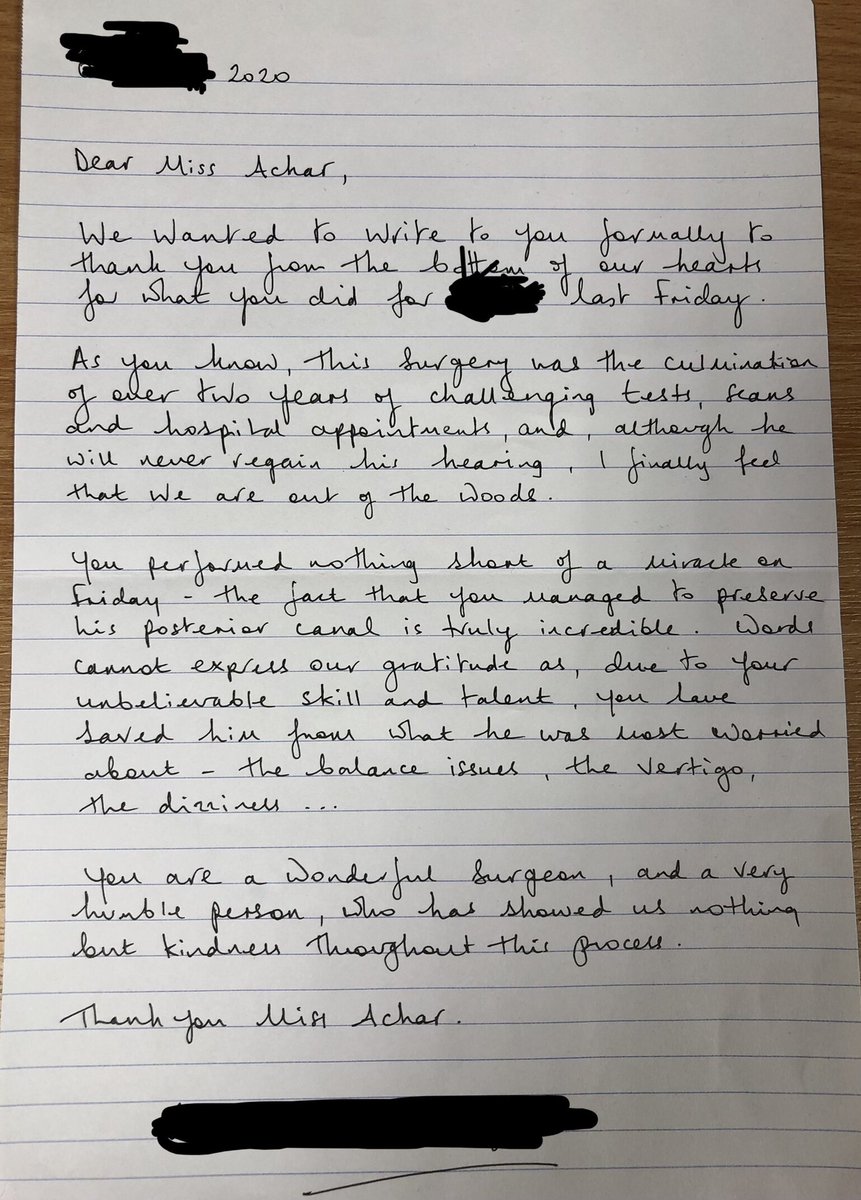 2020
Dear Miss Achar,
We wanted to write to you formally to
thank you from the bottom of our hearts
for what you did for last Friday.
As you know, this surgery was the culmination
of over two years of challenging tests, scans
and hospital appointments, and, although he
will never regain his hearing, I finally feel
that we are out of the woods.
You performed nothing short of a miracle on
Friday - the fact that you managed to preserve
his posterior canal is truly incredible. Words
cannot express our gratitude as, due to your
unbelievable skill and talent, you have
saved him from what he was most worried
about - the balance issues, the vertigo,
the dizziness ...
You are a wonderful surgeon, and a very
humble person, who has showed us nothing
but kindness throughout this process.
Thank you Miss Achar.